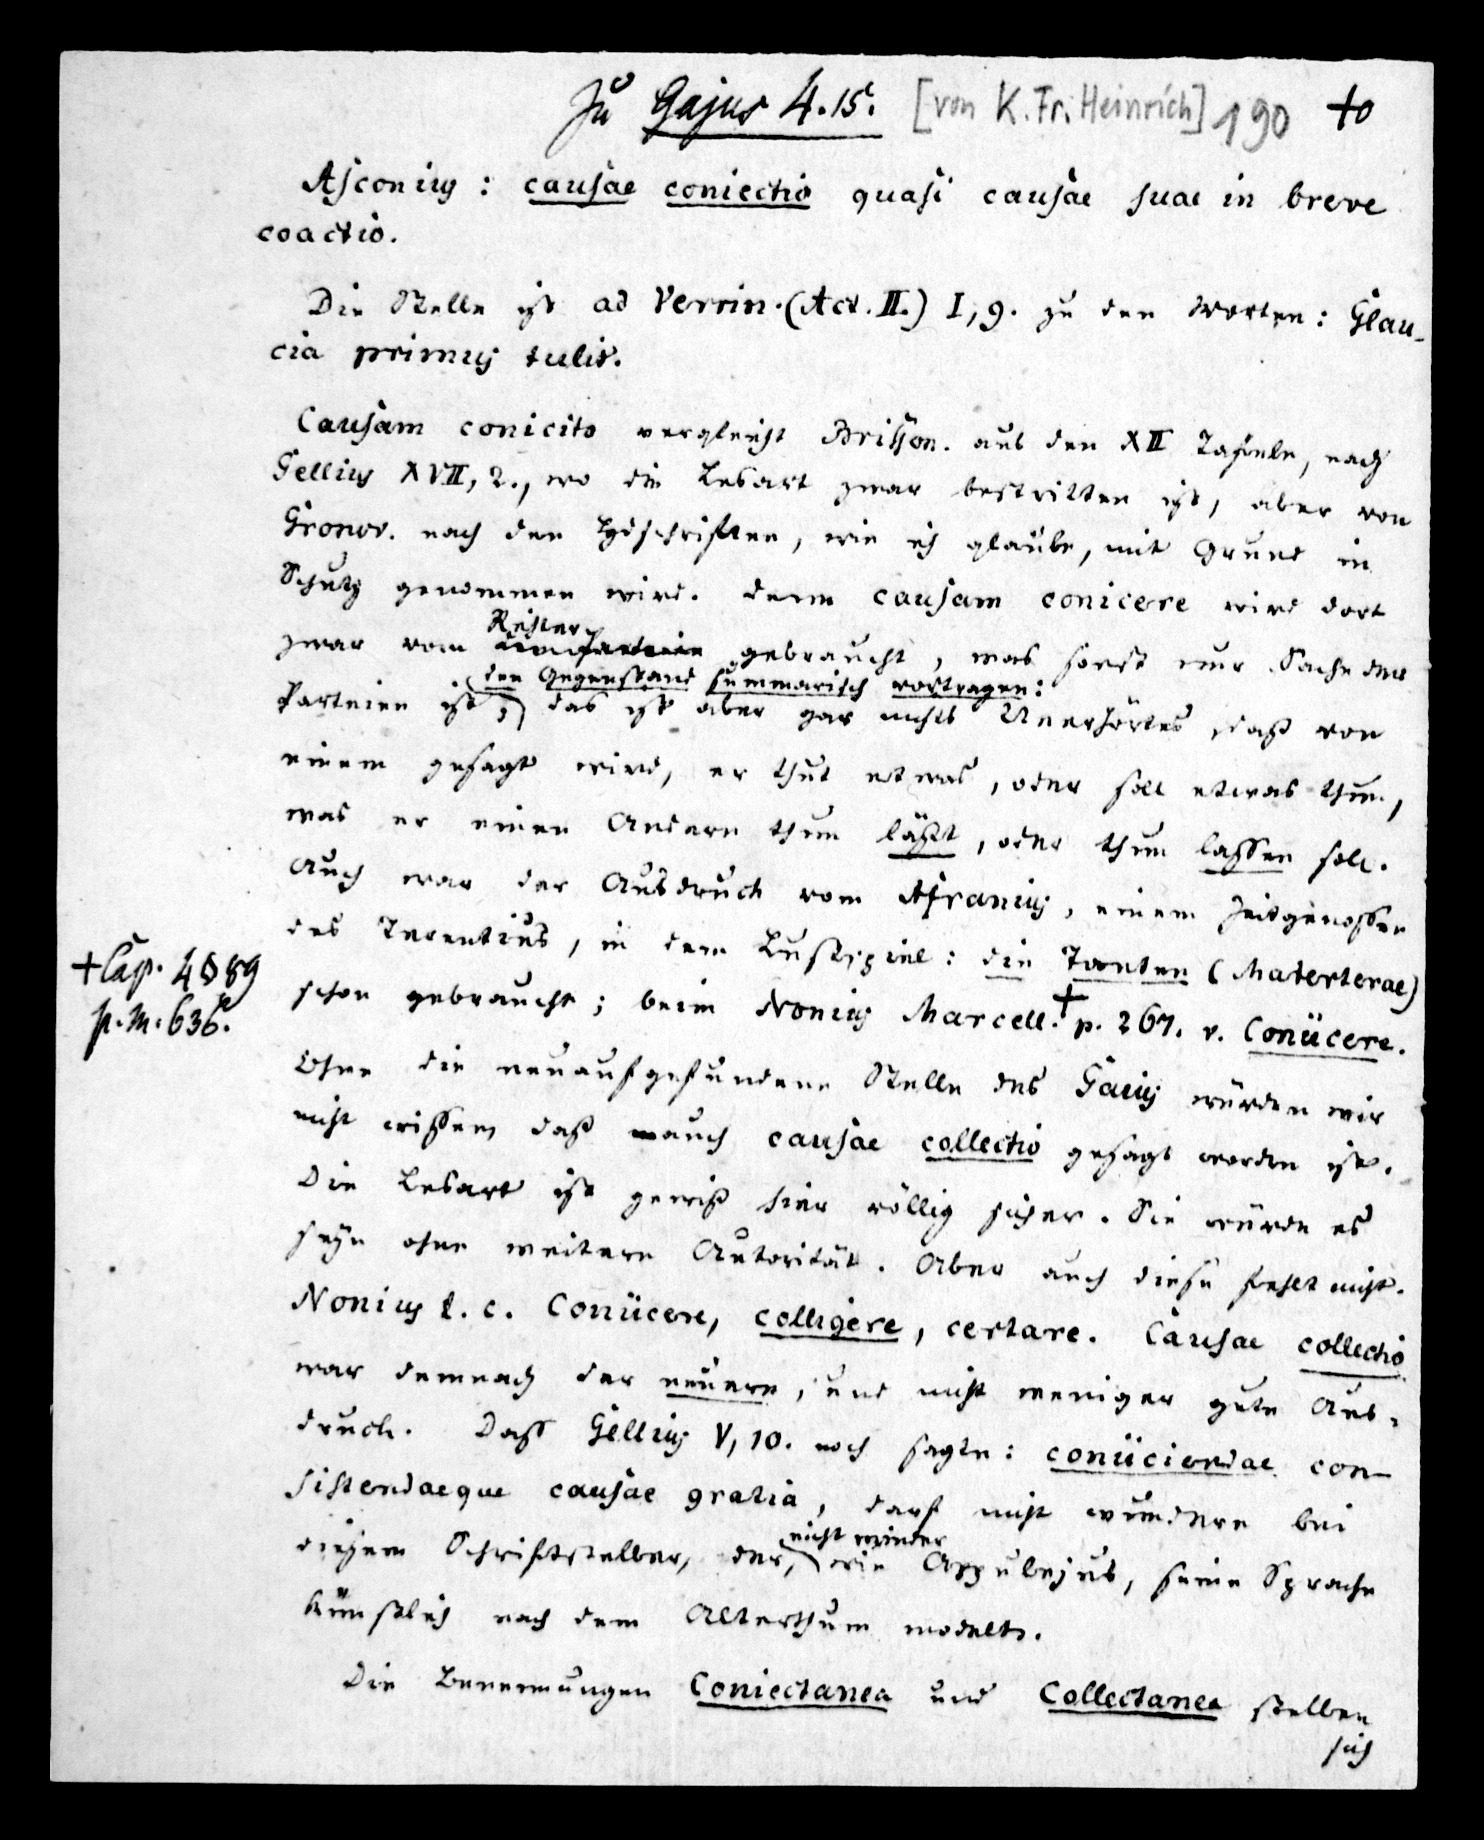 Zu Gajus 4.15. [von K. Fr. Heinrich] 190 +o
Asconius: causae coniectio quasi causae suae in breve
coactio.
Die Stelle ist ad Verrin. (Act. II.) I, 9. zu den Worten: Glau-
cia primus tulit.
Causam conicito vergleicht Brisson. aus den XII Tafeln, nach
Gellius XVII, 2., wo die Lesart zwar bestritten ist, aber von
Gronov. nach den Hdschriften, wie ich glaube, mit Grund in
Schutz genommen wird. Denn causam conicere wird dort
zwar vom Richter gebraucht, was sonst nur Sache der
(den Gegenstand summarisch vortragen:
Parteien ist;) das ist aber gar nichts Unerhörtes, daß von
einem gesagt wird, er thut etwas, oder soll etwas thun,
was er einen Andern thun läßt, oder thun lassen soll.
Auch war der Ausdruck vom Afranius, einem Zeitgenossen
des Terentius, in dem Lustspiel: die Tanten (Materterae)
schon gebraucht; beim Nonius Marcell.+ p. 267. v. Coniicere.
+ Cap. 4 § 89
p. m. 636.
Ohne die neuaufgefundene Stelle des Gaius würden wir
nicht wissen, daß auch causae collectio gesagt worden ist.
Die Lesart ist gewiß hier völlig sicher. Sie würde es
seyn ohne weitere Autorität. Aber auch diese fehlt nicht.
Nonius l. c. Coniicere, colligere, certare. Causae collectio
war demnach der neuere, und nicht weniger gute Aus-
druck. Daß Gellius V, 10. noch sagte: coniiciendae con-
sistendaeque causae gratia, darf nicht wundern bei
diesem Schriftsteller, der, nicht minder wie Appulejus, seine Sprache
künstlich nach dem Alterthum modelte.
Die Benennungen Coniectanea und Collectanea stellen
sich